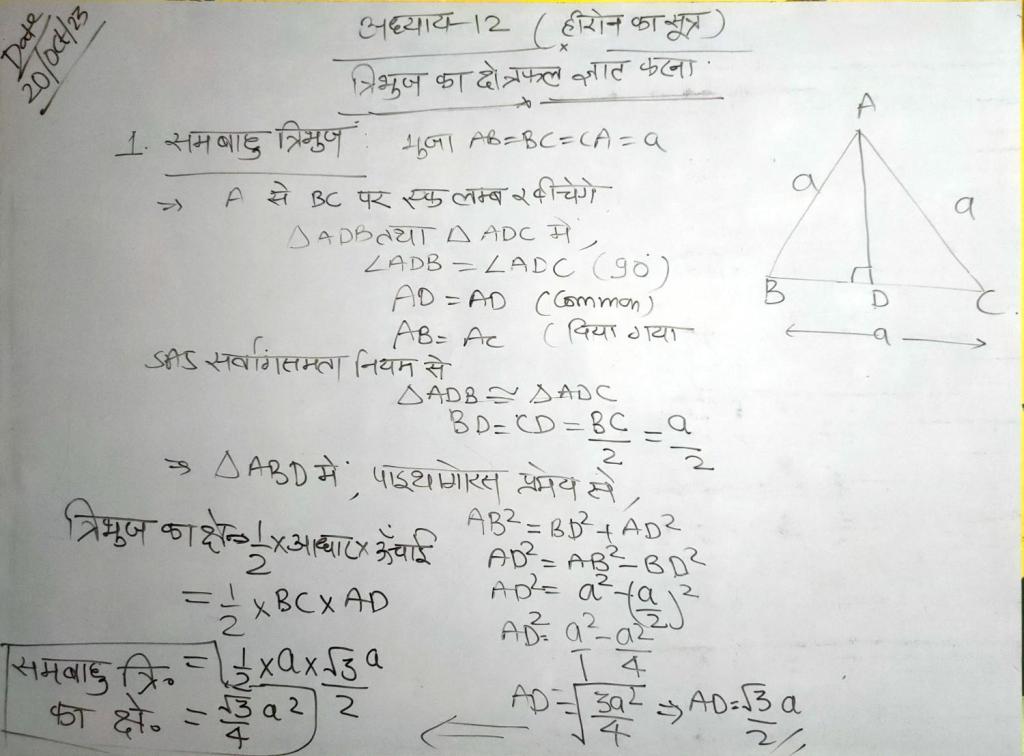 Date
20/Oct/23
अध्याय-12 (हीरोन का सूत्र)
त्रिभुज का क्षेत्रफल ज्ञात करना
1. समबाहु त्रिभुज : भुजा AB=BC=CA=a
⇒ A से BC पर एक लम्ब खींचेगे
△ADB तथा △ADC में,
∠ADB = ∠ADC (90°)
AD = AD (Common)
AB = AC (दिया गया
SAS सर्वांगसमता नियम से
△ADB ≅ △ADC
BD = CD = BC/2 = a/2
⇒ △ABD में, पाइथागोरस प्रमेय से,
AB² = BD² + AD²
AD² = AB² - BD²
AD² = a² - (a/2)²
AD² = a²/1 - a²/4
AD = √3a²/4 ⇒ AD = √3/2 a
त्रिभुज का क्षे० = 1/2 × आधार × ऊँचाई
= 1/2 × BC × AD
समबाहु त्रि० = 1/2 × a × √3/2 a
का क्षे० = √3/4 a²
A
a
a
B
D
C
a